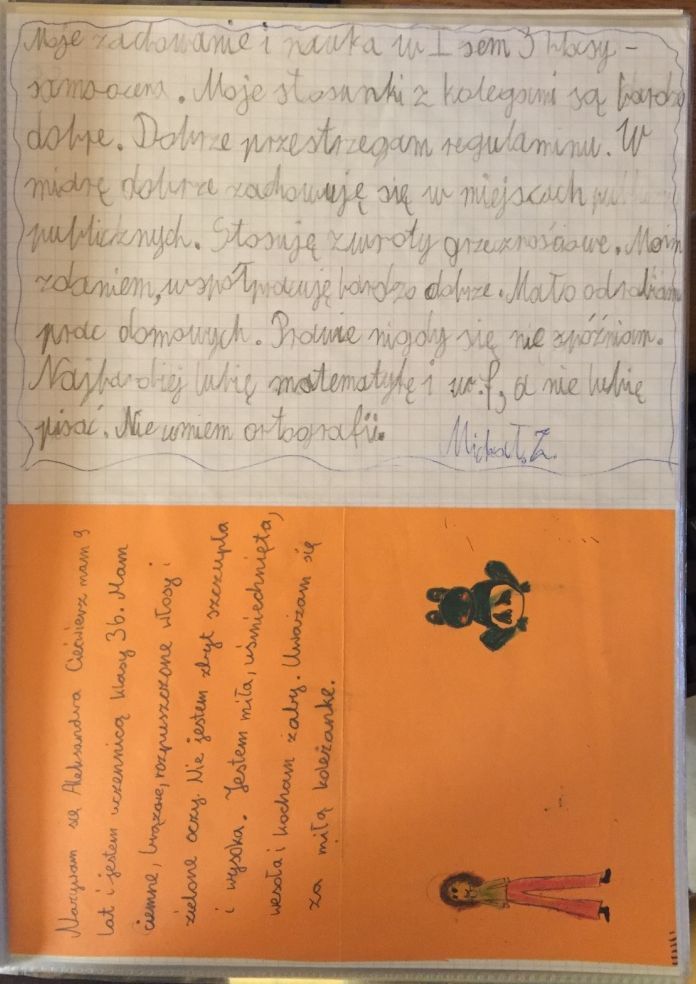 Moje zachowanie i nauka w I sem 3 klasy -
samoocena. Moje stosunki z kolegami są bardzo
dobre. Dobrze przestrzegam regulaminu. W
miarę dobrze zachowuję się w miejscach
publicznych. Stosuję zwroty grzecznościowe. Moim
zdaniem, współpracuję bardzo dobrze. Mało odrabiam
prac domowych. Prawie nigdy się nie spóźniam.
Najbardziej lubię matematykę i w.f, a nie lubię
pisać. Nie umiem ortografii.
Michał Z.
Nazywam się Aleksandra Ciećwierz mam 9
lat i jestem uczennicą klasy 3b. Mam
ciemne, brązowe, rozpuszczone włosy i
zielone oczy. Nie jestem zbyt szczupła
i wysoka. Jestem miła, uśmiechnięta,
wesoła i kocham żaby. Uważam się
za miłą koleżankę.